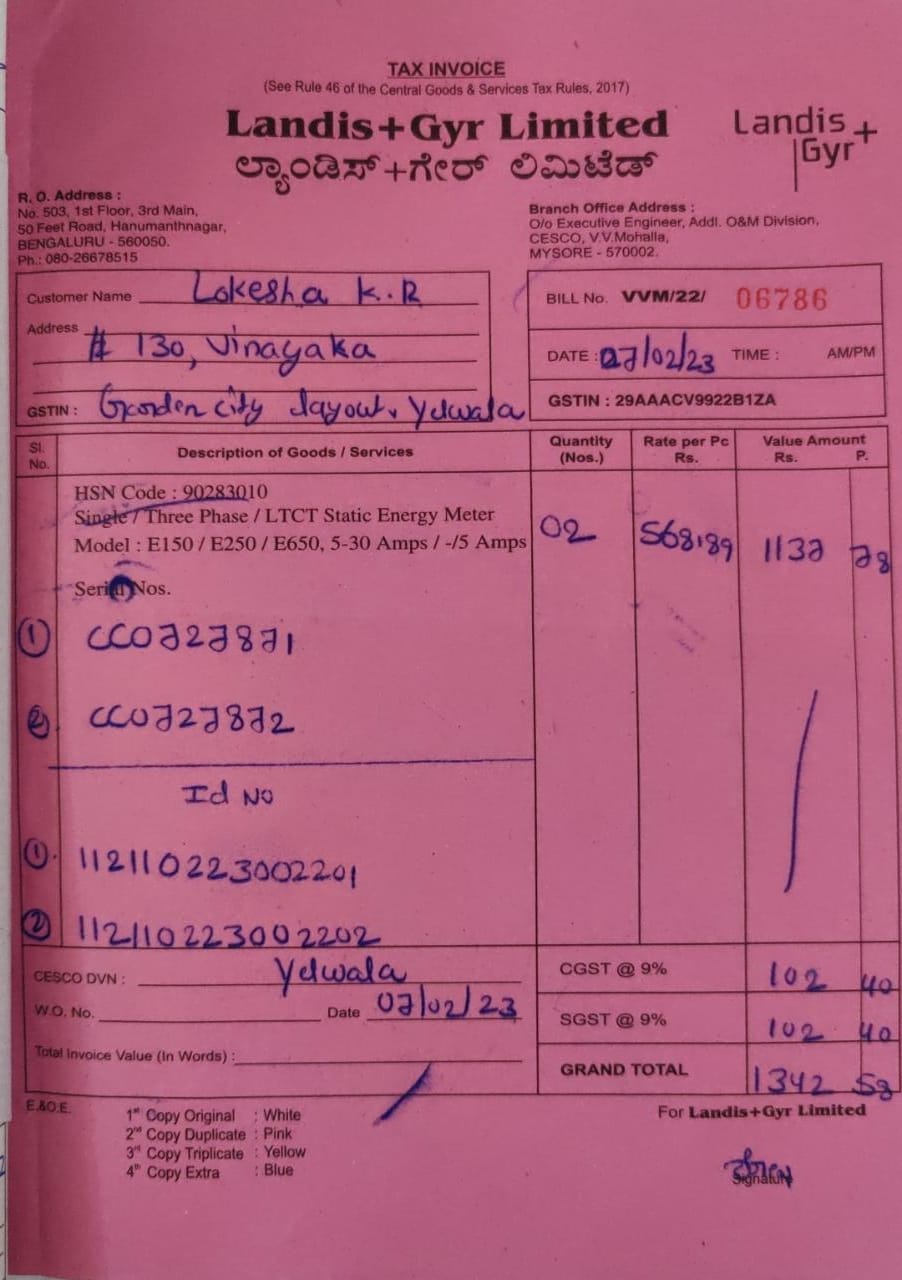 TAX INVOICE
(See Rule 46 of the Central Goods & Services Tax Rules, 2017)
Landis+Gyr Limited
ಲ್ಯಾಂಡಿಸ್+ಗೇರ್ ಲಿಮಿಟೆಡ್
Landis+
Gyr
R. O. Address :
No. 503, 1st Floor, 3rd Main,
50 Feet Road, Hanumanthnagar,
BENGALURU - 560050.
Ph.: 080-26678515
Branch Office Address :
O/o Executive Engineer, Addl. O&M Division,
CESCO, V.V.Mohalla,
MYSORE - 570002.
Customer Name Lokesha K.R
Address # 130, Vinayaka
GSTIN : Garden city layout, Yelwala
BILL No. VVM/22/ 06786
DATE : 07/02/23 TIME : AM/PM
GSTIN : 29AAACV9922B1ZA
Sl. No. Description of Goods / Services Quantity (Nos.) Rate per Pc Rs. Value Amount Rs. P.
HSN Code : 90283010
Single / Three Phase / LTCT Static Energy Meter
Model : E150 / E250 / E650, 5-30 Amps / -/5 Amps 02 568.89 1137 78
Serial Nos.
1 CC0727871
2 CC0727872
Id No
1 112110223002201
2 112110223002202
CESCO DVN : Yelwala CGST @ 9% 102 40
W.O. No. Date 07/02/23 SGST @ 9% 102 40
Total Invoice Value (In Words) : GRAND TOTAL 1342 58
E.&O.E.
1st Copy Original : White
2nd Copy Duplicate : Pink
3rd Copy Triplicate : Yellow
4th Copy Extra : Blue
For Landis+Gyr Limited
Signature